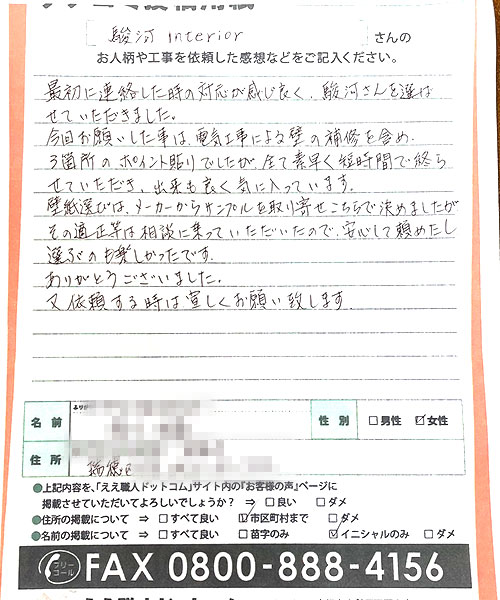 駿河 Interior さんの
お人柄や工事を依頼した感想などをご記入ください。
最初に連絡した時の対応が感じ良く、駿河さんを選ば
せていただきました。
今回お願いした事は、電気工事による壁の補修を含め、
3箇所のポイント貼りでしたが、全て素早く短時間で終ら
せていただき、出来も良く気に入っています。
壁紙選びは、メーカーからサンプルを取り寄せこちらで決めましたが
その適正等は相談に乗っていただいたので、安心して頼めたし
選ぶのも楽しかったです。
ありがとうございました。
又依頼する時は宜しくお願い致します。
名前 性別 □男性 ☑女性
住所 瑞穂区
●上記内容を、「ええ職人ドットコム」サイト内の『お客様の声』ページに
掲載させていただいてよろしいでしょうか? ⇒ □良い □ダメ
●住所の掲載について ⇒ □すべて良い ☑市区町村まで □ダメ
●名前の掲載について ⇒ □すべて良い □苗字のみ ☑イニシャルのみ □ダメ
フリーコール FAX 0800-888-4156